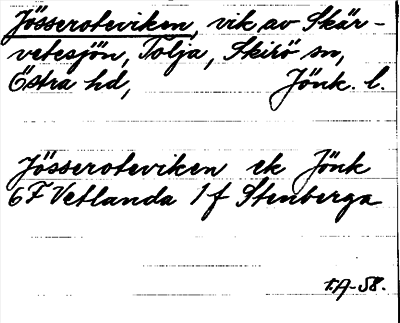 Jösseroteviken, vik av Skär-
vetesjön, Tolja, Skirö sn,
Östra hd, Jönk. l.
Jösseroteviken ek Jönk
6F Vetlanda 1f Stenberga
f.A-58.